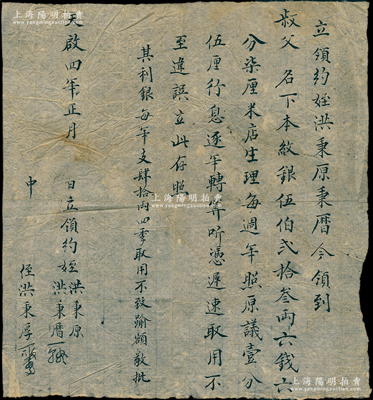 上海陽明拍賣
立領約姪洪秉原秉曆今領到
叔父 名下本紋銀伍佰弍拾叁両六錢六
分柒厘米店生理每週年照原議壹分
伍厘行息逐年轉筭听憑遲速取用不
至違誤立此存照
其利銀每年支肆拾両四季取用不致踰額敎批
啟四年正月 日立領約姪洪秉原
洪秉曆
中 侄洪秉厚
上海陽明拍賣